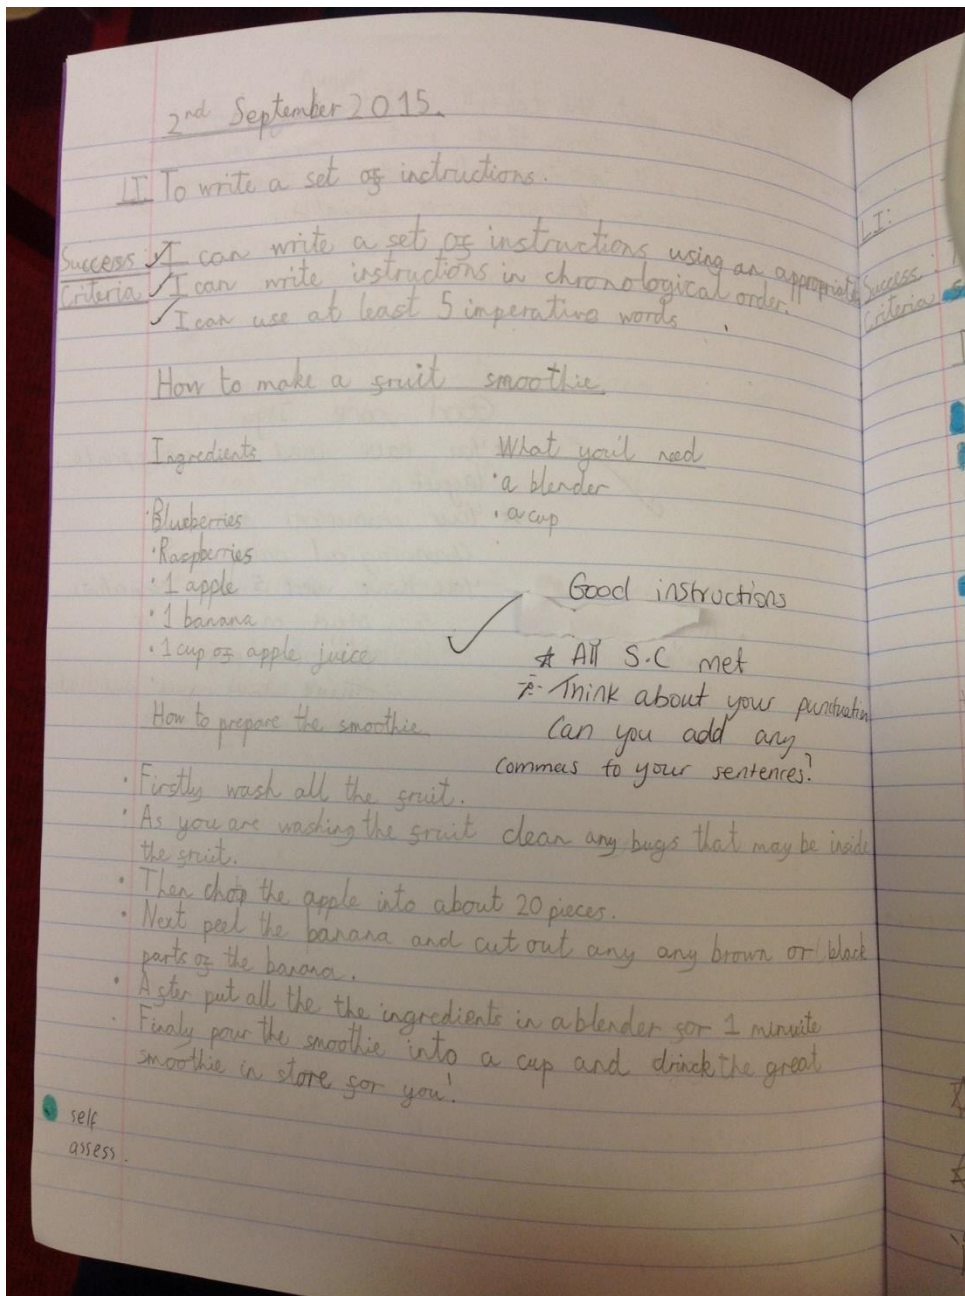 2nd September 2015.
LI To write a set of instructions.
Success : ✓ I can write a set of instructions using an appropriate
Criteria ✓ I can write instructions in chronological order.
✓ I can use at least 5 imperative words
How to make a fruit smoothie
Ingredients
·Blueberries
·Raspberries
·1 apple
·1 banana
·1 cup of apple juice
What you'll need
·a blender
·a cup
Good instructions
All S.C met
Think about your punctuation
Can you add any
commas to your sentences?
How to prepare the smoothie
· Firstly wash all the fruit.
· As you are washing the fruit clean any bugs that may be inside
the fruit.
· Then chop the apple into about 20 pieces.
· Next peel the banana and cut out any any brown or black
parts of the banana.
· After put all the the ingredients in a blender for 1 minuite
· Finaly pour the smoothie into a cup and drinck the great
smoothie in store for you!
self
assess.
LI:
Success
Criteria